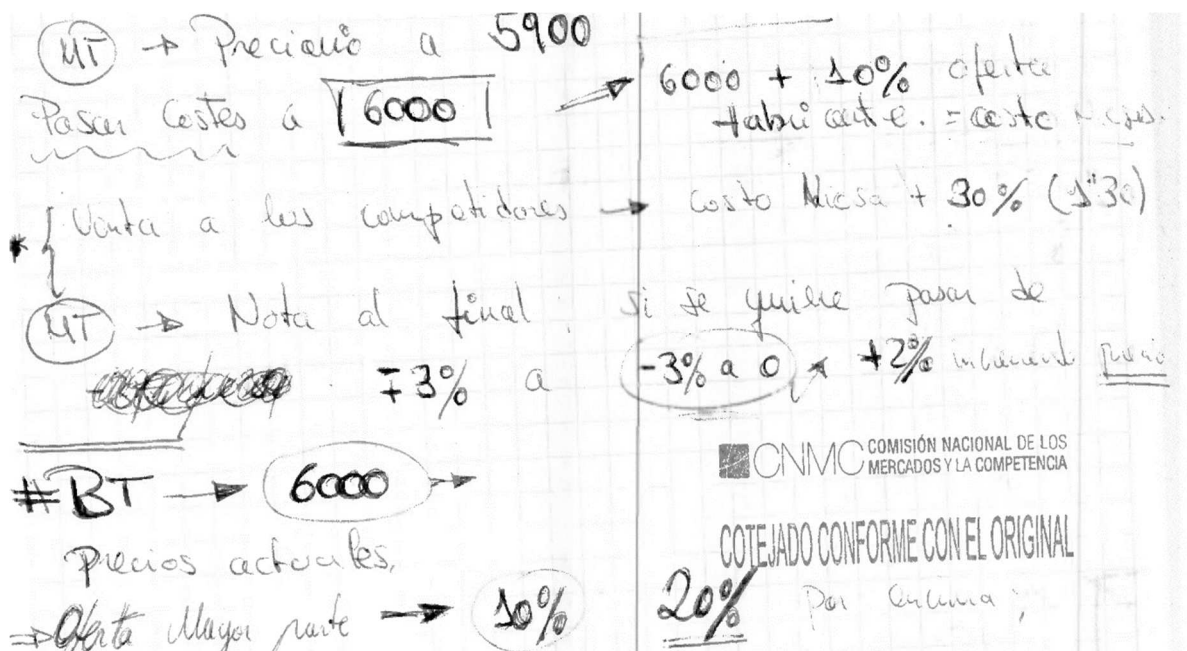 MT → Preciario a 5900
Pasar Costes a 6000 → 6000 + 10% oferta
fabricante. = costo
* Venta a los competidores → costo Nicsa + 30% (1"30)
MT → Nota al final. Si se quiere pasar de
∓3% a -3% a 0 +2% incremento precio
CNMC COMISIÓN NACIONAL DE LOS
MERCADOS Y LA COMPETENCIA
#BT → 6000 →
COTEJADO CONFORME CON EL ORIGINAL
Precios actuales.
⇒ Oferta Mayor parte → 10% 20% por encima